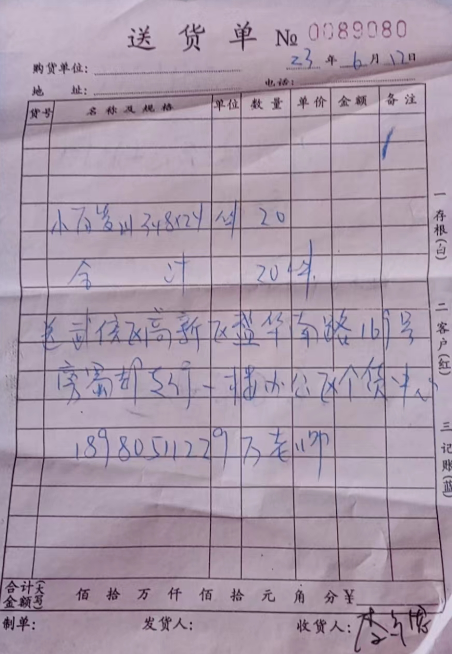 送货单 № 0089080
23 年 6 月 12 日
购货单位:
地 址: 电话:
货号 名称及规格 单位 数量 单价 金额 备注
348×24 件 20
合 计 20件
送武侯区高新区益华南路161号
支行一楼办公区个贷中心
18980511229万老师
一存根(白)
二客户(红)
三记账(蓝)
合计金额(大写) 佰 拾 万 仟 佰 拾 元 角 分 ¥
制单: 发货人: 收货人: